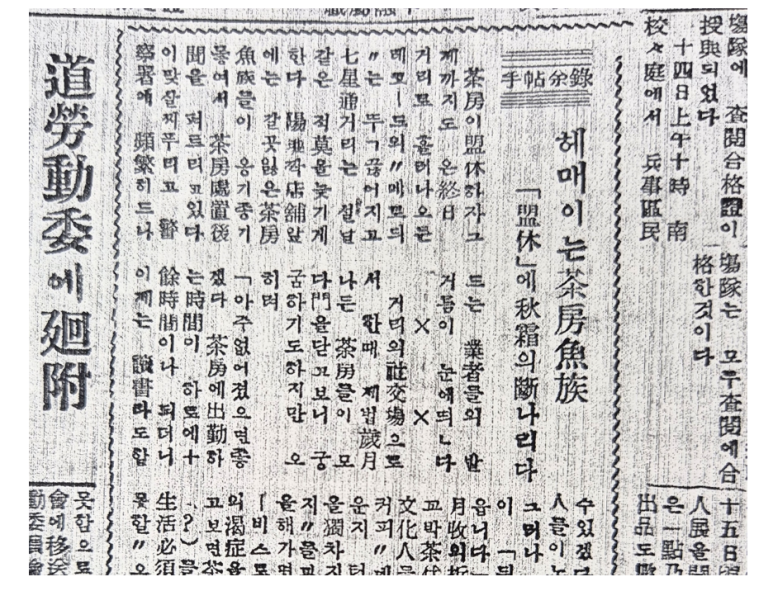 塲隊에 査閱合格證이
授與되었다
十四日上午十時 南
校々庭에서 兵事區民
塲隊는 모두査閱에合
格한것이다
十五日
人民을
은一點乃
出品도
手帖余錄
헤매이는茶房魚族
「盟休」에秋霜의斷나리다
茶房이盟休하자그
제까지도 온終日
거리로 흘러나오든
레코ㅣ드의〃메로듸
〃는 뚜ㄱ끊어지고
七星通거리는 설날
같은 적莫을늦기게
한다 陽地깍店舖앞
에는 갈곳잃은茶房
魚族들이 옹기종기
몽여서 茶房處置後
聞을 퍼트리고있다
이맛살찌푸리고 警
察署에 頻繁히드나
드는 業者들의 발
거름이 눈에띄ㄴ다
× ×
거리의社交場으로
서 한때 제법歲月
나든 茶房들이 모
다門을닫고보니 궁
굼하기도하지만 오
히려
「아주없어졌으면좋
겠다 茶房에出勤하
는時間이 하로에十
餘時間이나 되더니
이제는 讀書라도할
수있겠다
人들이
그러나
이
읍니다
月收의折
고박茶代
文化人은
커피〃메
운지 턴
을獨차지
지〃를피
을해가면
ㅣ비스로
의渴症을
고보면茶
．？）를
生活必須
못할〃오
道勞動委에廻附
못함으로
會에移送
動委員會